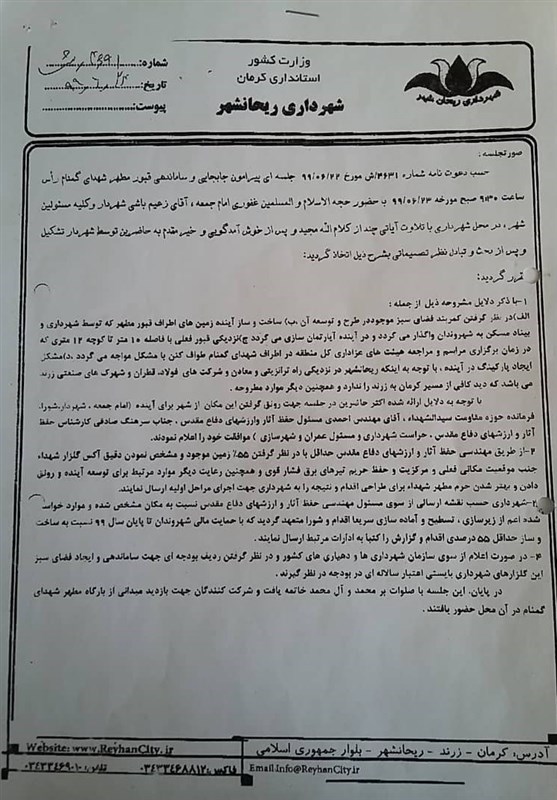 وزارت کشور
استانداری کرمان
شهرداری ریحانشهر
شماره:
تاریخ: ۹۹.۶.۲۴
پیوست:
شهرداری ریحان شهر
صورتجلسه :
حسب دعوت نامه شماره ۴۶۳۱/ش مورخ ۹۹/۰۶/۲۲ جلسه ای پیرامون جابجایی و ساماندهی قبور مطهر شهدای گمنام رأس
ساعت ۹:۳۰ صبح مورخه ۹۹/۰۶/۲۳ با حضور حجه الاسلام و المسلمین غفوری امام جمعه ، آقای زعیم باشی شهردار وکلیه مسئولین
شهر ، در محل شهرداری با تلاوت آیاتی چند از کلام الله مجید و پس از خوش آمدگویی و خیر مقدم به حاضرین توسط شهردار تشکیل
و پس از بحث و تبادل نظر تصمیماتی بشرح ذیل اتخاذ گردید:
مقرر گردید:
۱-با ذکر دلایل مشروحه ذیل از جمله :
الف)در نظر گرفتن کمربند فضای سبز موجوددر طرح و توسعه آن ،ب) ساخت و ساز آینده زمین های اطراف قبور مطهر که توسط شهرداری و
بنیاد مسکن به شهروندان واگذار می گردد و در آینده آپارتمان سازی می گردد ج)نزدیکی قبور فعلی با فاصله ۱۰ متر تا کوچه ۱۲ متری که
در زمان برگزاری مراسم و مراجعه هیئت های عزاداری کل منطقه در اطراف شهدای گمنام طواف کنن با مشکل مواجه می گردد .د)مشکل
ایجاد پارکینگ در آینده ، با توجه به اینکه ریحانشهر در نزدیکی راه ترانزیتی و معادن و شرکت های فولاد، قطران و شهرک های صنعتی زرند
می باشد که دید کافی از مسیر کرمان به زرند را ندارد و همچنین دیگر موارد مطروحه .
با توجه به دلایل ارائه شده اکثر حاضرین در جلسه جهت رونق گرفتن این مکان از شهر برای آینده (امام جمعه ، شهردار،شورا،
فرمانده حوزه مقاومت سیدالشهداء ، آقای مهندس احمدی مسئول حفظ آثار وارزشهای دفاع مقدس ، جناب سرهنگ صادقی کارشناس حفظ
آثار و ارزشهای دفاع مقدس ، حراست شهرداری و مسئول عمران و شهرسازی ) موافقت خود را اعلام نمودند.
۲-از طریق مهندسی حفظ آثار و ارزشهای دفاع مقدس حداقل با در نظر گرفتن ۵۵٪ زمین موجود و مشخص نمودن دقیق آکس گلزار شهداء
جنب موقعیت مکانی فعلی و مرکزیت و حفظ حریم تیرهای برق فشار قوی و همچنین رعایت دیگر موارد مرتبط برای توسعه آینده و رونق
دادن و بهتر شدن حرم مطهر شهداء برای طراحی اقدام و نتیجه را به شهرداری جهت اجرای مراحل اولیه ارسال نمایند.
۳-شهرداری حسب نقشه ارسالی از سوی مسئول مهندسی حفظ آثار و ارزشهای دفاع مقدس نسبت به مکان مشخص شده و موارد خواسته
شده اعم از زیرسازی ، تسطیح و آماده سازی سریعا اقدام و شورا متعهد گردید که با حمایت مالی شهروندان تا پایان سال ۹۹ نسبت به ساخت
و ساز حداقل ۵۵ درصدی اقدام و گزارش را کتبا به ادارات مرتبط ارسال نمایند .
۴- در صورت اعلام از سوی سازمان شهرداری ها و دهیاری های کشور و در نظر گرفتن ردیف بودجه ای جهت ساماندهی و ایجاد فضای سبز
این گلزارهای شهرداری بایستی اعتبار سالانه ای در بودجه در نظر گیرند .
در پایان، این جلسه با صلوات بر محمد و آل محمد خاتمه یافت و شرکت کنندگان جهت بازدید میدانی از بارگاه مطهر شهدای
گمنام در آن محل حضور یافتند .
آدرس: کرمان - زرند - ریحانشهر - بلوار جمهوری اسلامی
Website: www.ReyhanCity.ir
Email:Info@ReyhanCity.ir
فاکس: ۰۳۴۳۳۴۶۸۸۱۲
تلفن: ۰۳۴۳۳۴۶۹۰۱۰